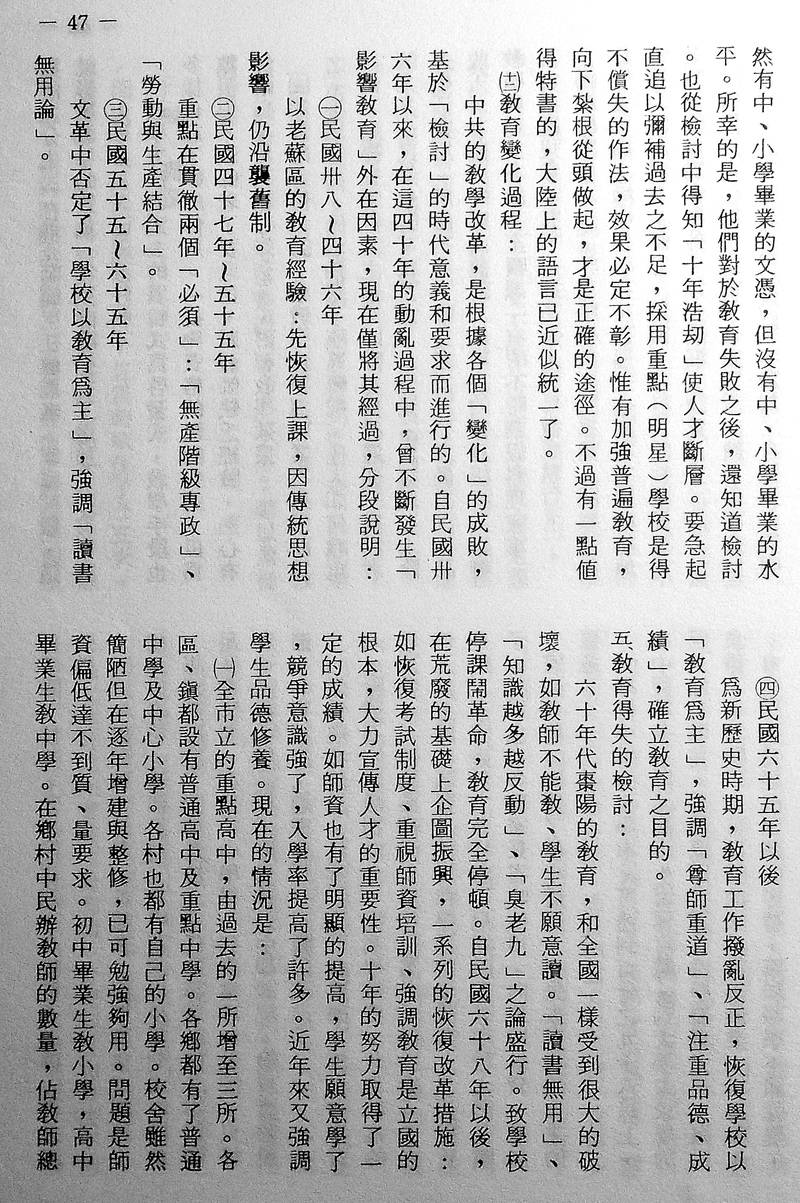 — 47 —
然有中、小學畢業的文憑，但沒有中、小學畢業的水
平。所幸的是，他們對於教育失敗之後，還知道檢討
。也從檢討中得知「十年浩劫」使人才斷層。要急起
直追以彌補過去之不足，採用重點（明星）學校是得
不償失的作法，效果必定不彰。惟有加強普遍教育，
向下紮根從頭做起，才是正確的途徑。不過有一點值
得特書的，大陸上的語言已近似統一了。
㈩教育變化過程：
中共的教學改革，是根據各個「變化」的成敗，
基於「檢討」的時代意義和要求而進行的。自民國卅
六年以來，在這四十年的動亂過程中，曾不斷發生「
影響教育」外在因素，現在僅將其經過，分段說明：
㈠民國卅八～四十六年
以老蘇區的教育經驗：先恢復上課，因傳統思想
影響，仍沿襲舊制。
㈡民國四十七年～五十五年
重點在貫徹兩個「必須」：「無產階級專政」、
「勞動與生產結合」。
㈢民國五十五～六十五年
文革中否定了「學校以教育爲主」，強調「讀書
無用論」。
㈣民國六十五年以後
爲新歷史時期，教育工作撥亂反正，恢復學校以
「教育爲主」，強調「尊師重道」、「注重品德、成
績」，確立教育之目的。
五、教育得失的檢討：
六十年代棗陽的教育，和全國一樣受到很大的破
壞，如教師不能教、學生不願意讀。「讀書無用」、
「知識越多越反動」、「臭老九」之論盛行。致學校
停課鬧革命，教育完全停頓。自民國六十八年以後，
在荒廢的基礎上企圖振興，一系列的恢復改革措施：
如恢復考試制度、重視師資培訓、強調教育是立國的
根本，大力宣傳人才的重要性。十年的努力取得了一
定的成績。如師資也有了明顯的提高，學生願意學了
，競爭意識強了，入學率提高了許多。近年來又強調
學生品德修養。現在的情況是：
㈠全市立的重點高中，由過去的一所增至三所。各
區、鎮都設有普通高中及重點中學。各鄉都有了普通
中學及中心小學。各村也都有自己的小學。校舍雖然
簡陋但在逐年增建與整修，已可勉強夠用。問題是師
資偏低達不到質、量要求。初中畢業生教小學，高中
畢業生教中學。在鄉村中民辦教師的數量，佔教師總